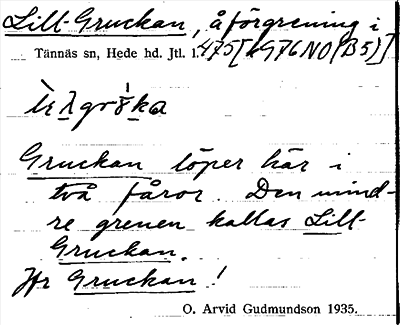 Lill-Gruckan, å förgrening i
Tännäs sn, Hede hd. Jtl. l. 475[69G76NO(B5)]
Gruckan löper här i
två fåror. Den mind-
re grenen kallas Lill-
Gruckan.
Jfr Gruckan!
O. Arvid Gudmundson 1935.